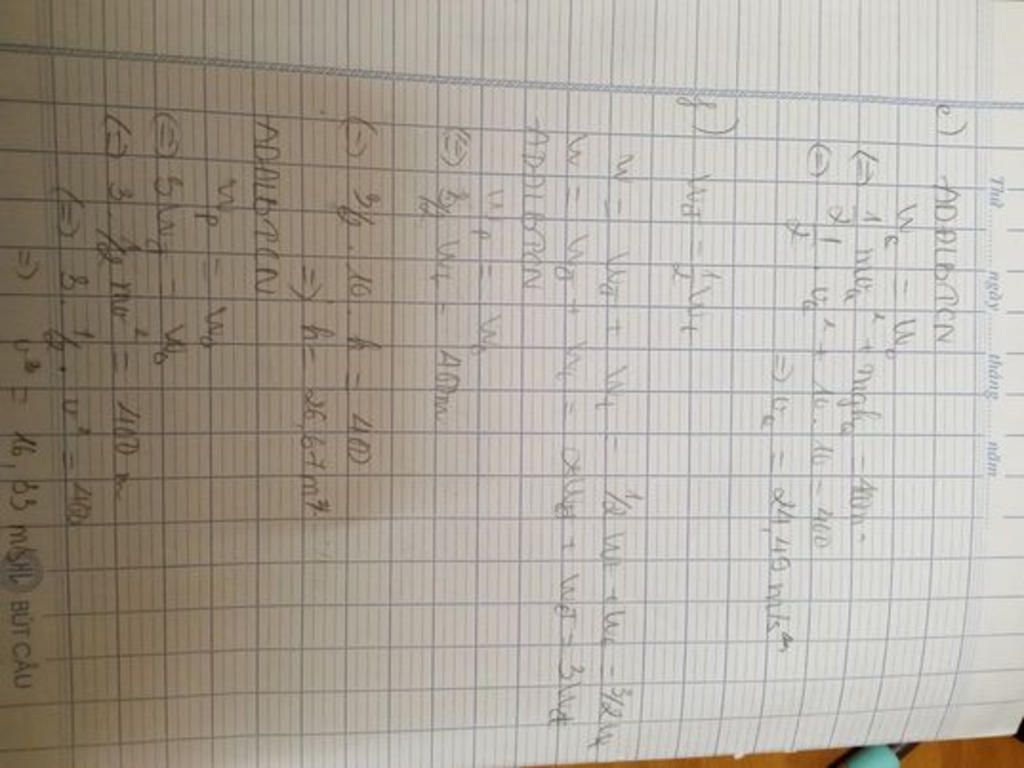 Thứ ............ ngày ............ tháng ............ năm ............
e) ADĐLBTCN
Wc = Wo
(=) 1/2 mvc² + mghc = 400m
(=) 1/2 . vc² + 10 . 10 = 400
=> vc = 24,49 m/s
f) Wđ = 1/2 Wt
W = Wđ + Wt = 1/2 Wt + Wt = 3/2 Wt
W = Wđ + Wt = 2Wđ + Wđ = 3Wđ
ADĐLBTCN
Wp = Wo
(=) 3/2 Wt = 400m
(=) 3/2 . 10 . h = 400
=> h = 26,67 m
ADĐLBTCN
Wp = Wo
(=) 3Wđ = Wo
(=) 3 . 1/2 mv² = 400 m
(=) 3 . 1/2 . v² = 400
=> v² = 16,33 m/s
BÚT CÂU